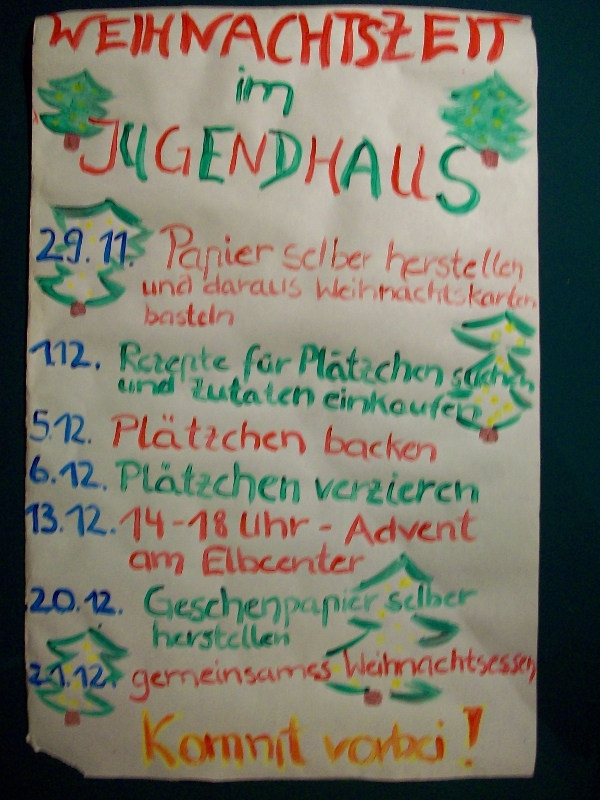 WEIHNACHTSZEIT
im
JUGENDHAUS
29.11. Papier selber herstellen
und daraus Weihnachtskarten
basteln
1.12. Rezepte für Plätzchen suchen
und Zutaten einkaufen
5.12. Plätzchen backen
6.12. Plätzchen verzieren
13.12. 14-18 Uhr - Advent
am Elbcenter
20.12. Geschenpapier selber
herstellen
21.12. gemeinsames Weihnachtsessen
Kommt vorbei!